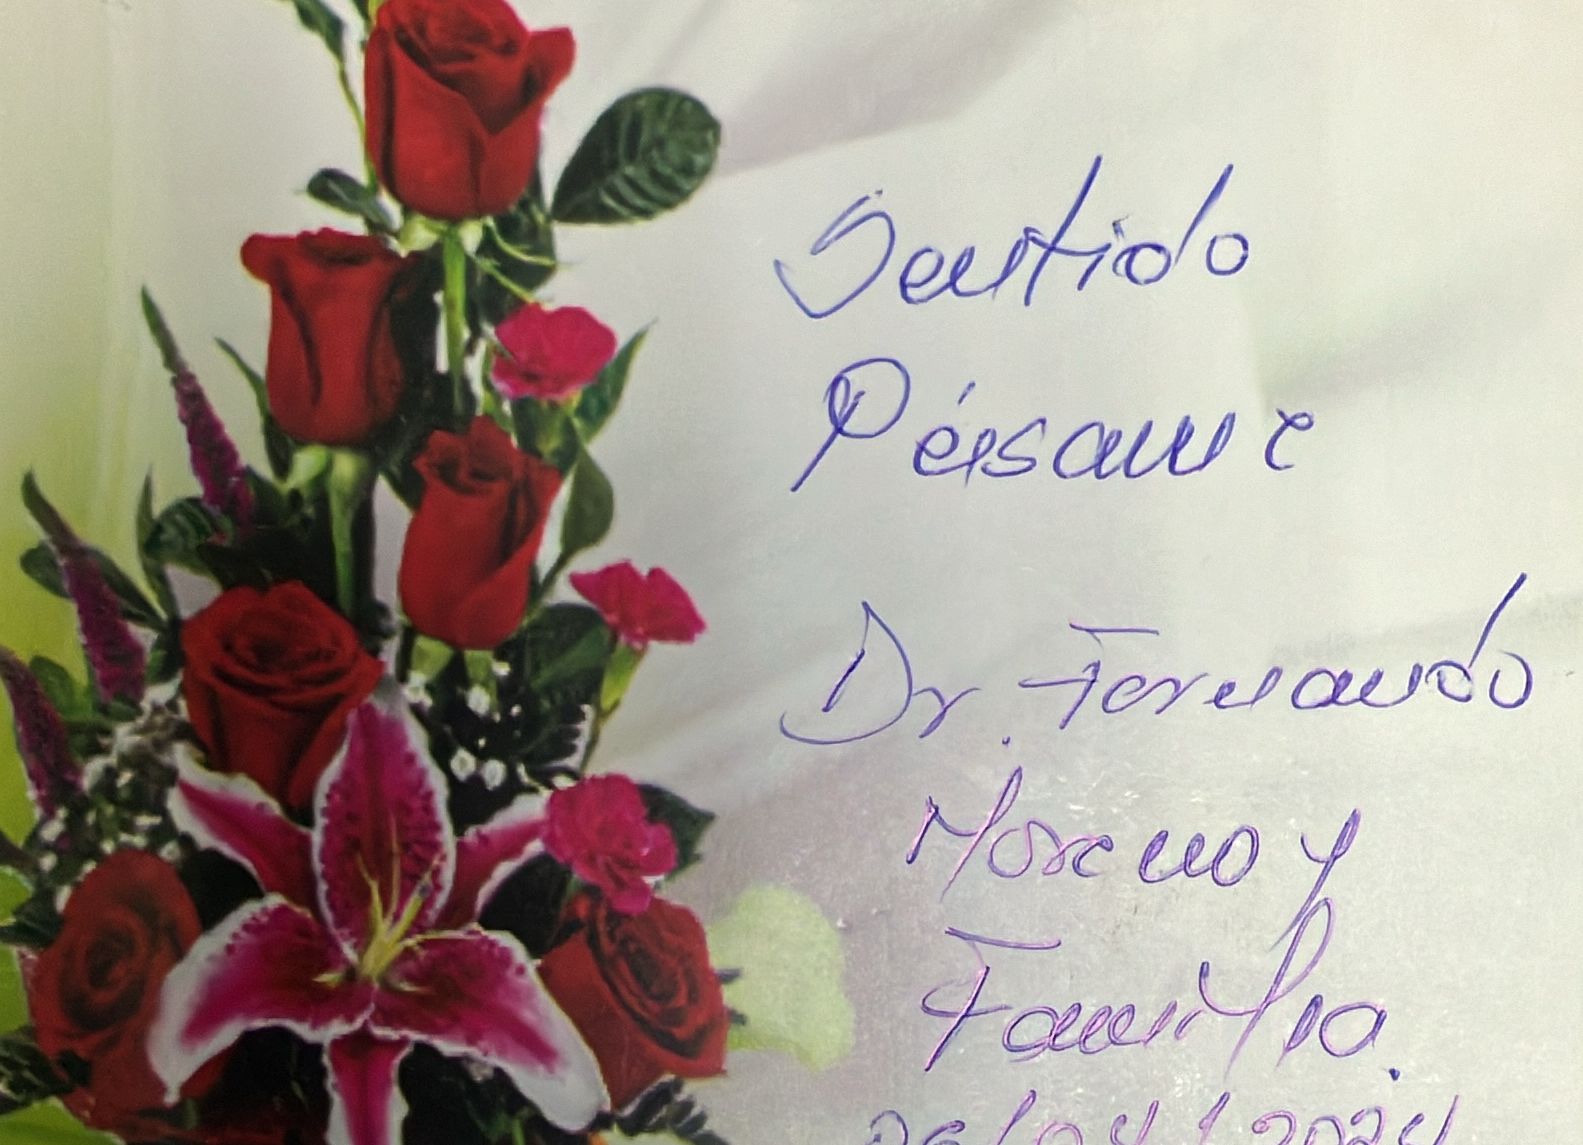 Sentido
Pésame
Dr. Fernando
Moreno y
Familia.